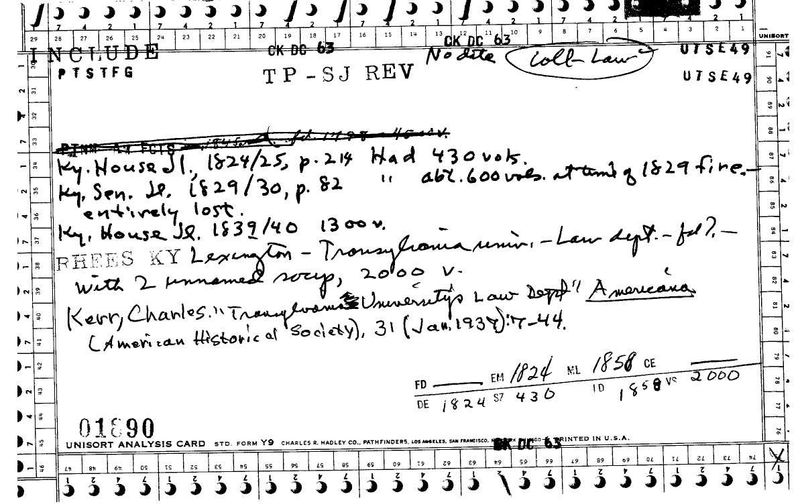 INCLUDE
CK DC 63
CK DC 63
UNISORT
No date
Coll-Law
UTSE49
PTSTFG
TP-SJ REV
UTSE49
Ky. House Jl., 1824/25, p. 214 Had 430 vols.
Ky. Sen. Jl. 1829/30, p. 82 " abt. 600 vols. at time of 1829 fire -
entirely lost.
Ky. House Jl. 1839/40 1300 v.
RHEES KY Lexington - Transylvania univ. - Law dept. - fd?. -
with 2 unnamed socys, 2000 v.
Kerr, Charles. "Transylvania University's Law Dept" Americana
(American Historical Society), 31 (Jan. 1937): 7-44.
FD EM 1824 ML 1858 CE
DE 1824 SZ 430 LD 1858 VS 2000
01890
UNISORT ANALYSIS CARD STD. FORM Y9 CHARLES R. HADLEY CO., PATHFINDERS, LOS ANGELES, SAN FRANCISCO, PRINTED IN U.S.A.
CK DC 63